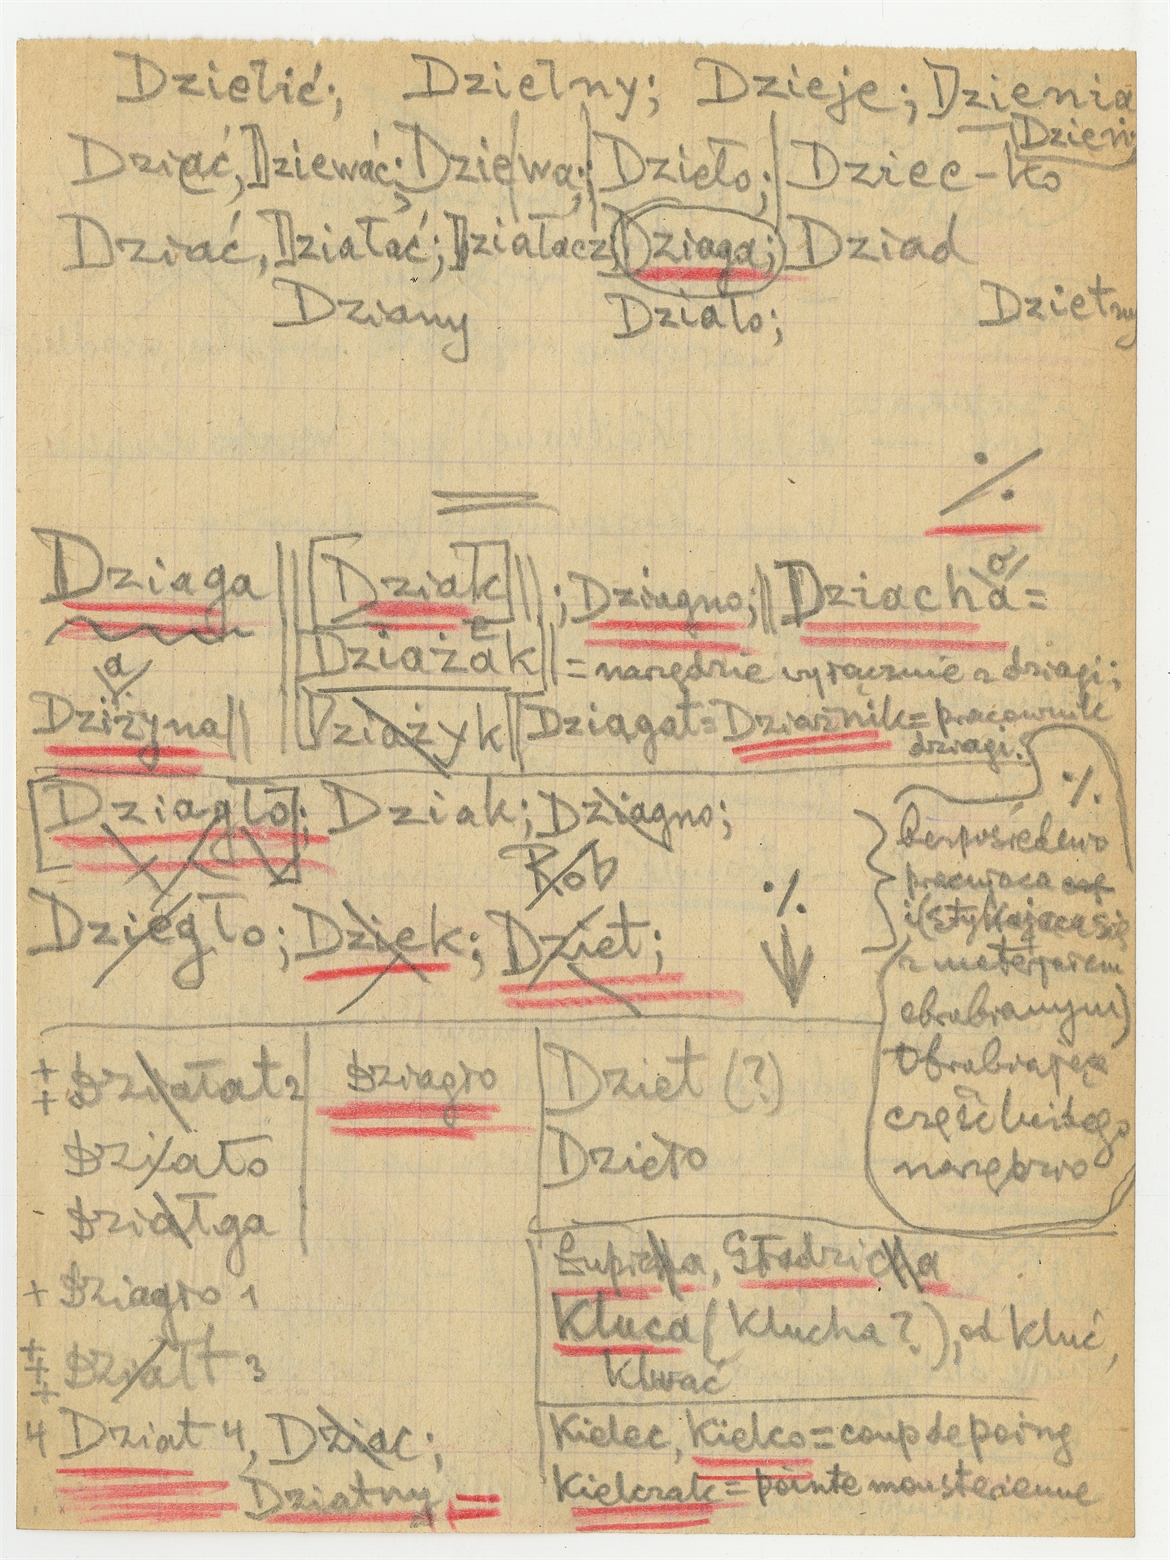 Dzielić; Dzielny; Dzieje; Dzienia
Dzień
Dziać, Dziewać; Dziewa; Dzieło; Dziec-ko
Dziać, Działać; Działacz, Dziaga; Dziad
Dziany Działo; Dzietny
·/.
Dziaga Dziak ; Dziagno; Dziacha =
o
Dziażak = narzędzie wyłącznie z dziagi;
e
a
Dziżyna Dziażyk Dziagał = Dziaźnik = pracownik
dziagi.
Dziagło; Dziak; Dziagno;
·/.
Rob
Dziegło; Dziek; Dziet;
·/.
bezpośrednio
pracująca
i (stykająca się
z materjałem
obrabianym)
Obrabiająca
część każdego
narzędzia
+ + Działat 2 Dziagło Dzieł (?)
Działo Dzieło
- Działga
Łupi a, Gładzi a
+ Dziagło 1
Kluca (Klucha?), od kluć,
Kluwać
+ + + Dziatł 3
4 Dziat 4, Dziac; Kielec, Kielco = coup de poing
Dziatny = Kielczak = pointe mousterienne